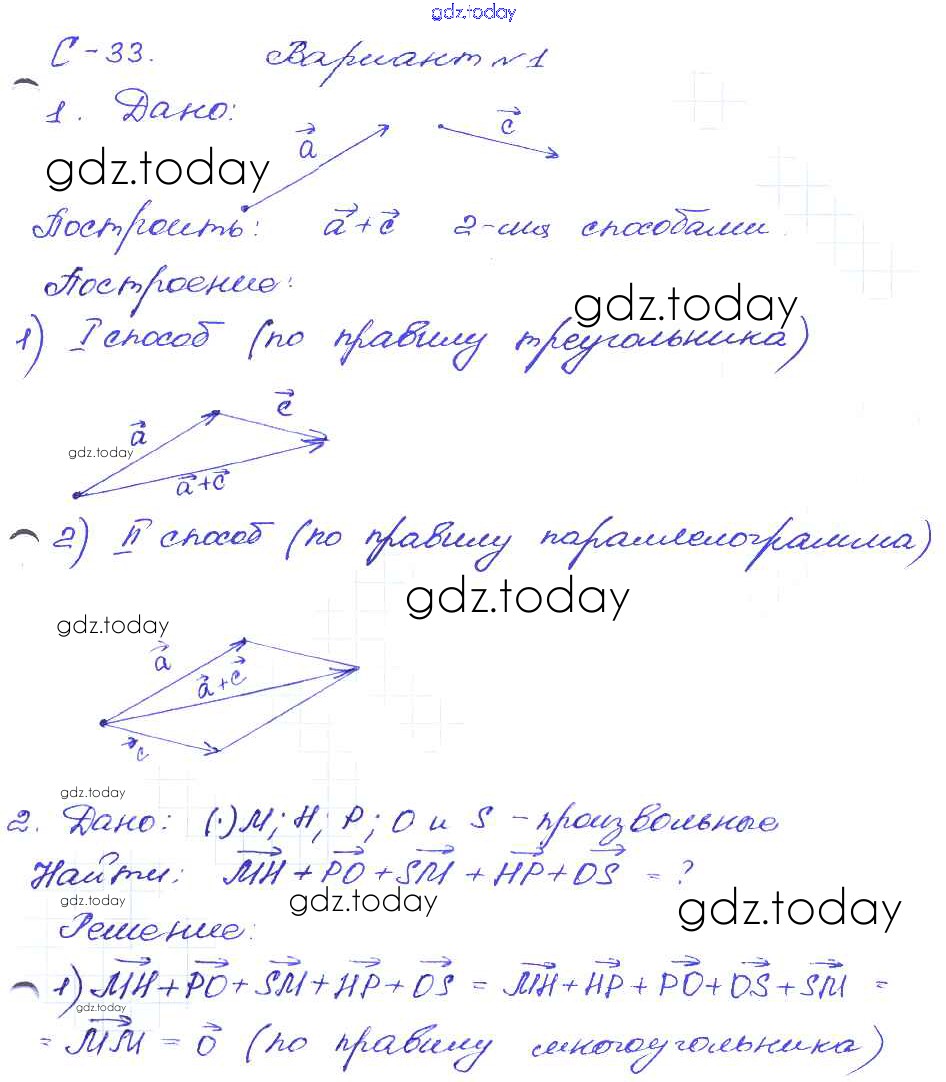 gdz.today
С-33. Вариант №1
1. Дано: a c
gdz.today
Построить: a+c 2-мя способами.
Построение:
gdz.today
1) I способ (по правилу треугольника)
c
a
gdz.today
a+c
2) II способ (по правилу параллелограмма)
gdz.today
gdz.today
a
a+c
c
gdz.today
2. Дано: (·) M; H; P; O и S - произвольные
Найти: MH + PO + SM + HP + OS = ?
gdz.today gdz.today gdz.today
Решение:
1) MH + PO + SM + HP + OS = MH + HP + PO + OS + SM =
gdz.today
= MM = 0 (по правилу многоугольника)